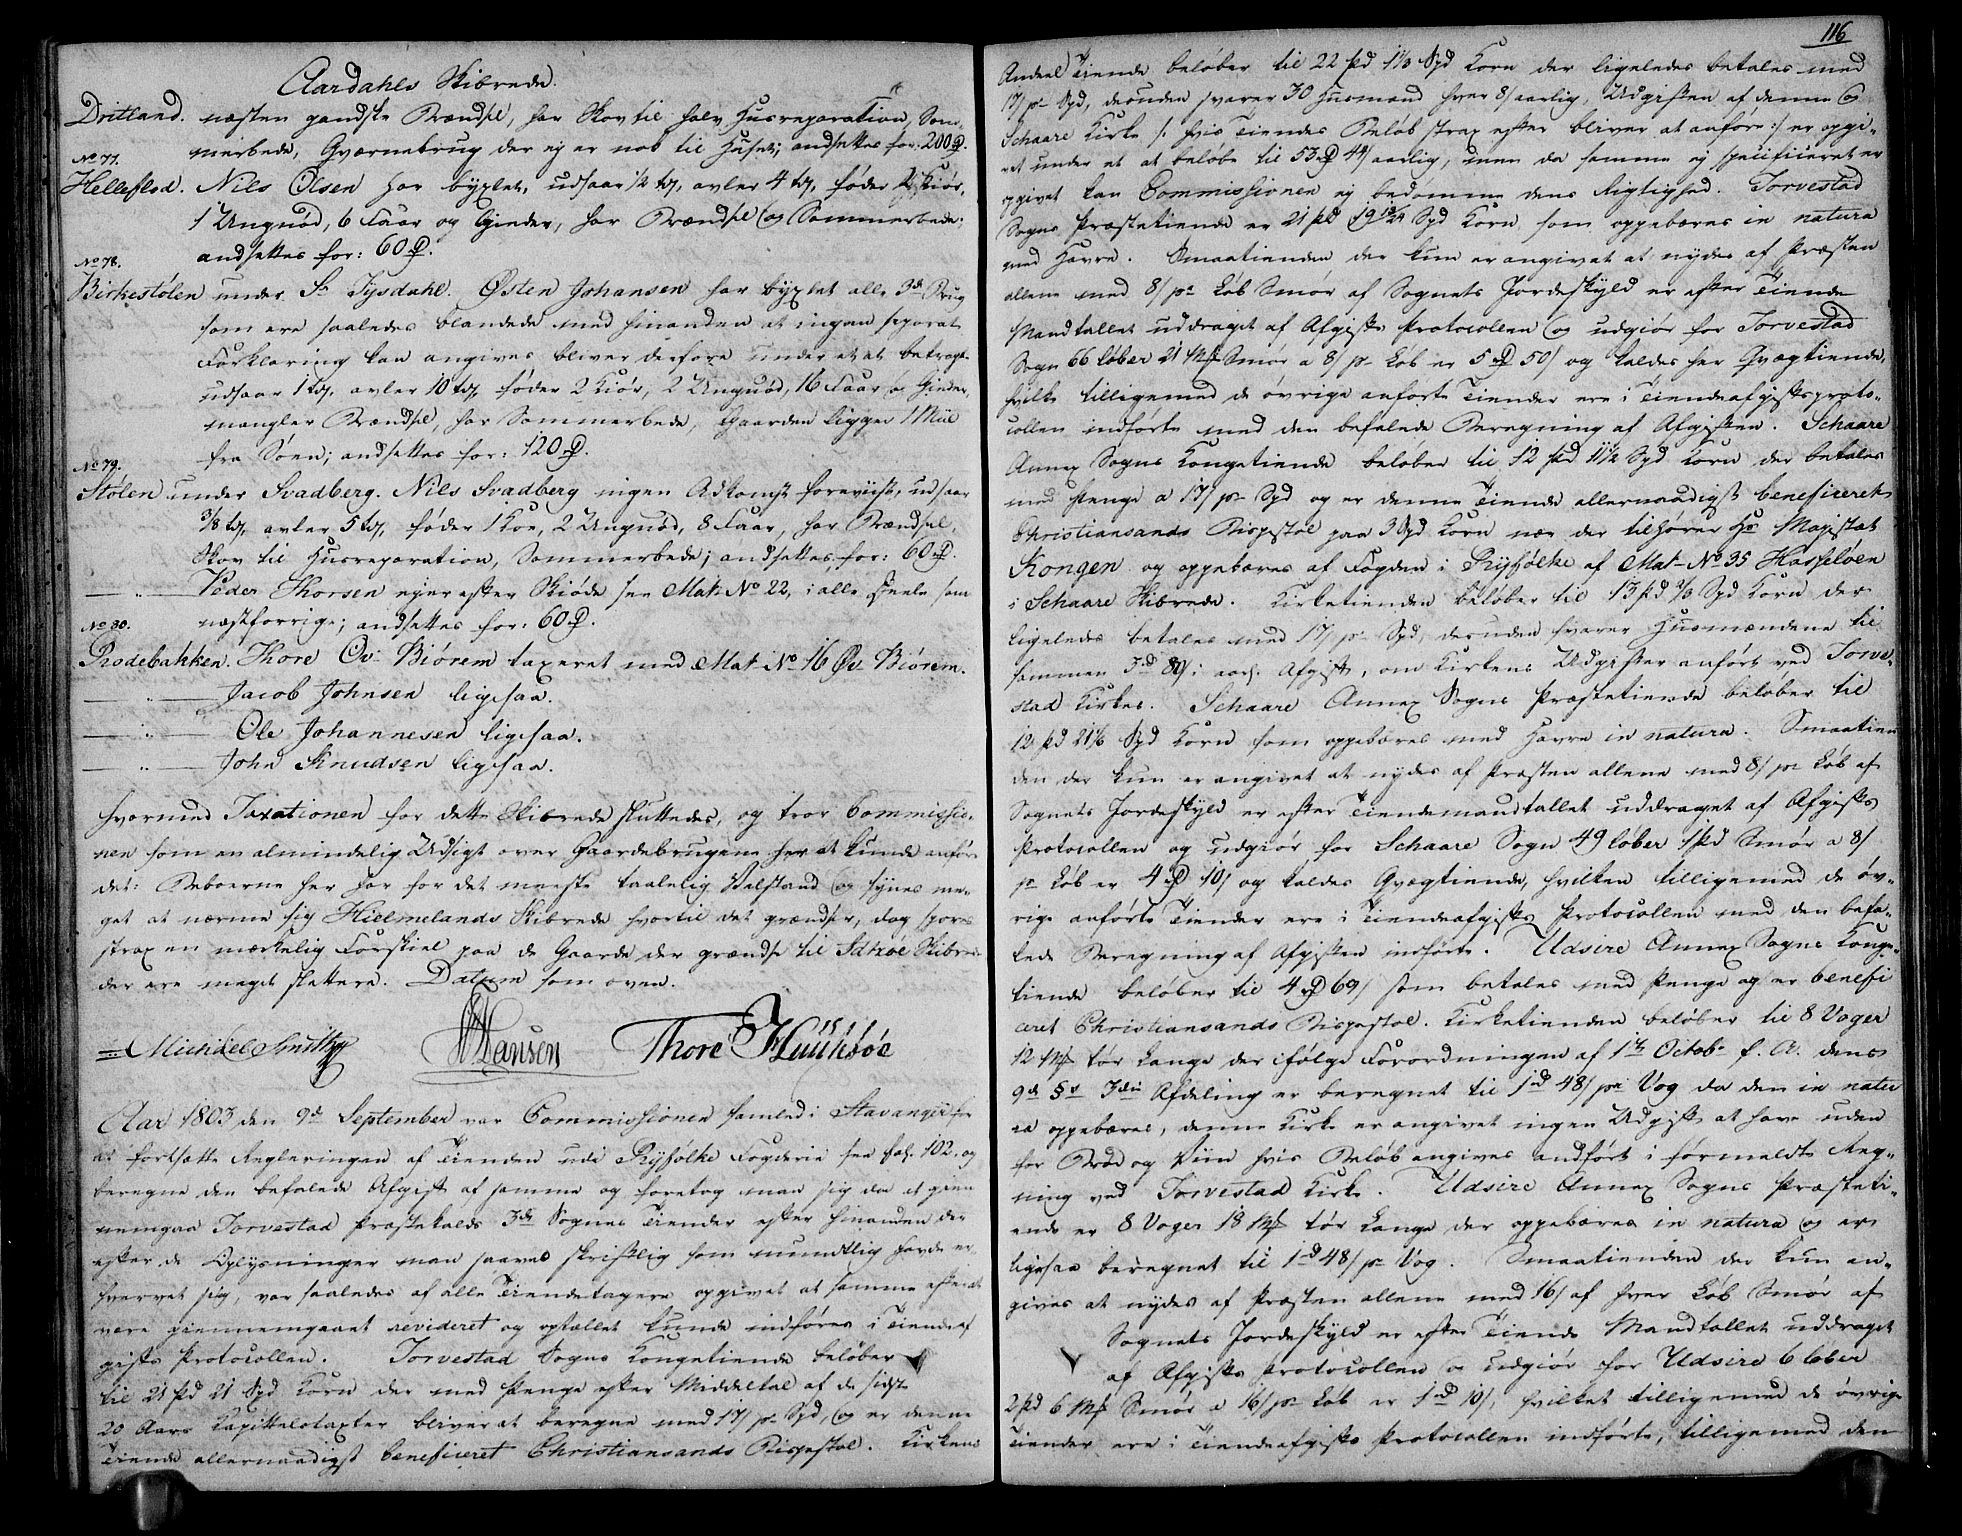 Aardahls Skibrede.
Dritland. næsten gandske Brændsel, har Skov til halv Husreparation, Som-
merbede, Qværnebrug der ej er nok til Huset; ansættes for: 200 Rd.
No 77.
Helleflod. Nils Olsen har byxlet, udsaar 1/2 td, avler 4 td, føder 2 Kiør,
1 Ungnød, 6 Faar og Gieder, har Brændsel og Sommerbede;
andsættes for: 60 Rd.
No 78.
Birkestølen under St Tysdahl. Østen Johansen har byxlet alle 3de Brug
som ere saaledes blandede med hinanden at ingen separat
Forklaring kan angives bliver derfore under et at betragte
udsaar 1 td, avler 10 td, føder 2 Kiør, 2 Ungnød, 16 Faar og Gieder,
mangler Brændsel, har Sommerbede, Gaarden ligger 1 Miil
fra Søen; andsættes for: 120 Rd.
No 79.
Stølen under Svadberg. Nils Svadberg ingen Adkomst foreviist, udsaar
3/8 td, avler 5 td, føder 1 Koe, 2 Ungnød, 8 Faar, har Brændsel,
Skov til Husreparation, Sommerbede; andsættes for: 60 Rd.
— " — Peder Thorsen ejer efter Skiøde see Mat: No 22, i alle Deele som
næstforrige; andsættes for: 60 Rd.
No 80.
Brodebakken. Thore Ov: Biørem taxeret med Mat: No 16 Øv: Biørem.
— " — Jacob Johnsen ligesaa.
— " — Ole Johannesen ligesaa.
— " — John Knudsen ligesaa.
hvormed Taxationen for dette Skibrede sluttedes, og troer Commissio-
nen som en almindelig Udsigt over Gaardebrugene her at kunde anføre
det: Beboerne her har for det meeste taalelig Velstand og synes me-
get at nærme sig Hielmelands Skibrede hvortil det grændser, dog spores
strax en mærkelig Forskiel paa de Gaarde der grændse til Idsøe Skibrede
der ere meget slettere. Datum som oven.
Michael Smith Hansen Thore
Aar 1803 den 9de September var Commissionen samled i Stavanger for
at fortsætteRegleringen af Tienden udi Ryfølke Fogderie see fol. 102. og
beregne den befalede Afgift af samme og foretog man sig da at gien
nemgaae Torvestad Præstekalds 3de Sognes Tiender efter hinanden der
efter de Oplysninger man saavel skriftlig som mundtlig havde er-
hvervet sig, var saaledes af alle Tiendetagere opgivet at samme efter at
være giennemgaaet revideret og optællet kunde indføres i Tiendeaf
gifts Protocollen. Torvestad Sogns Kongetiende beløber
til 21 Pd 21 Spd Korn der med Penge efter Middeltal af de sidste
20 Aars Kapittelstaxter bliver at beregne med 17/ pr Spd, og er denne
Tiende allernaadigst beneficeret Christiansands Bispestol. Kirkens
116
Andeel Tiende beløber til 22 Pd 1 1/3 Spd Korn der ligeledes betales med
17/ pr Spd, desuden svarer 30 Husmænd hver 8/ aarlig, Udgiften af denne og
Schaare Kirke /: hvis Tiendes Beløb strax efter bliver at anføre :/ er opgi-
vet under et at beløbe til 53 Rd 44/ aarlig, men da samme ej specificeret er
opgivet kan Commissionen ej bedømme dens Rigtighed. Torvestad
Sogns Præstetiende er 21 Pd 19 Spd Korn som oppebæres in natura
med Havre. Smaatienden der kun er angivet at nydes af Præsten
allene med 8/ pr Løb Smør af Sognets Jordeskyld er efter Tiende
Mandtallet uddraget af Afgifts Protocollen og udgiør for Torvestad
Sogn 66 Løber 21 Mk Smør a 8/ pr Løb er 5 Rd 50/ og kaldes her Qvægtiende,
hvilke tilligemed de øvrige anførte Tiender ere i Tiendeafgiftsproto-
collen indførte med den befalede Beregning af Afgiften. Schaare
Annex Sogns Kongetiende beløber til 12 Pd 11 1/2 Spd Korn der betales
med Penge a 17/ pr Spd og er denne Tiende allernaadigst beneficeret
Christiansands Bispestol paa 3 Spd Korn nær der tilhører Hs Majestæt
Kongen og oppebæres af Fogden i Ryfølke af Mat: No 35 Hasseløen
i Schaare Skibrede. Kirketienden beløber til 13 Pd 2/3 Spd Korn der
ligeledes betales med 17/ pr Spd, desuden svarer Husmændene til
sammen 3 rd 80/ i aarl. Afgift, om Kirkens Udgifter anført ved Torve-
stad Kirkes. Schaare Annex Sogns Præstetiende beløber til
12 Pd 21 1/6 Spd Korn som oppebæres med Havre in natura. Smaatien
den der kun er angivet at nydes af Præsten allene med 8/ pr Løb af
Sognets Jordeskyld er efter Tiendemandtallet uddraget af Afgifts
Protocollen og udgiør for Schaare Sogn 49 Løber 1 Pd Smør a 8/
pr Løb er 4 Rd 10/ og kaldes Qvægtiende, hvilken tilligemed de øv-
rige anførte Tiender ere i Tiendeafgifts Protocollen med den befa-
lede Beregning af Afgiften indførte. Udsire Annex Sogns Konge-
tiende beløber til 4 Rd 69/ som betales med Penge og er benefi
ceret Christiansands Bispestol. Kirketienden beløber til 8 Voger
12 Mk tør Lange der ifølge Forordningen af 1te Octobr f. A. dens
9de §s 3die Afdeling er beregnet til 1 rd 48/ pr Vog da den in natu
ra oppebæres, denne Kirke er angivet ingen Udgift at have uden
for Brød og Viin hvis Beløb angives andført i førmeldte Reg-
ning ved Torvestad Kirke. Udsire Annex Sogns Præsteti-
ende er 8 Voger 18 Mk tør Lange der oppebæres in natura og er
ligesaa beregnet til 1 rd 48/ pr Vog. Smaatienden der kun an-
gives at nydes af Præsten allene med 16/ af hver Løb Smør af
Sognets Jordeskyld er efter Tiende Mandtallet uddraget
af Afgifts Protocollen og udgiør for Udsire 6 Løber
2 Pd 6 Mk Smør a 16/ pr Løb er 1 rd 10/, hvilket tilligemed de øvrige
Tiender ere i Tiendeafgifts Protocollen indførte, tilligemed den